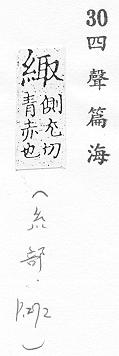 30四聲篇海
緅
側尤切
青赤也
(糸部.P.292)